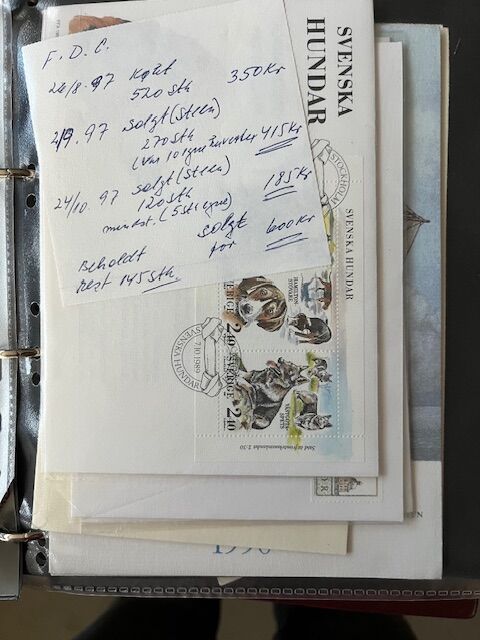 F. D. C.
26/8.97 Købt 350Kr
520 Stk
2/9.97 Solgt (Steen)
270 Stk
(Var 10 415Kr
24/10.97 Solgt (Steen)
120 Stk 185Kr
(5 Stk
Beholdt Solgt
Rest 145 Stk. for 600Kr
SVENSKA
HUNDAR
STOCKHOLM
SVENSKA HUNDAR
HAMILTON
STÖVARE
SVERIGE
2.40
SVENSKA HUNDAR
7.10.1989
SVERIGE
2.40
SPETS
1990